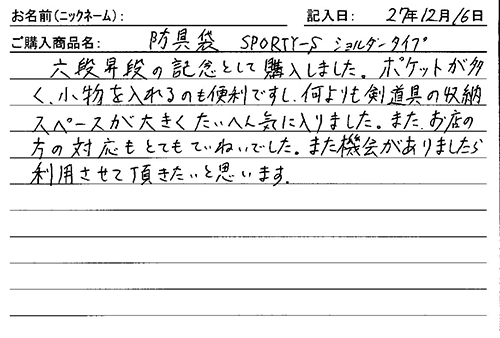 お名前(ニックネーム): 記入日: 27年12月16日
ご購入商品名: 防具袋 SPORTY-S ショルダータイプ
六段昇段の記念として購入しました。ポケットが多
く、小物を入れるのも便利ですし、何よりも剣道具の収納
スペースが大きくたいへん気に入りました。また、お店の
方の対応もとてもていねいでした。また機会がありましたら
利用させて頂きたいと思います。